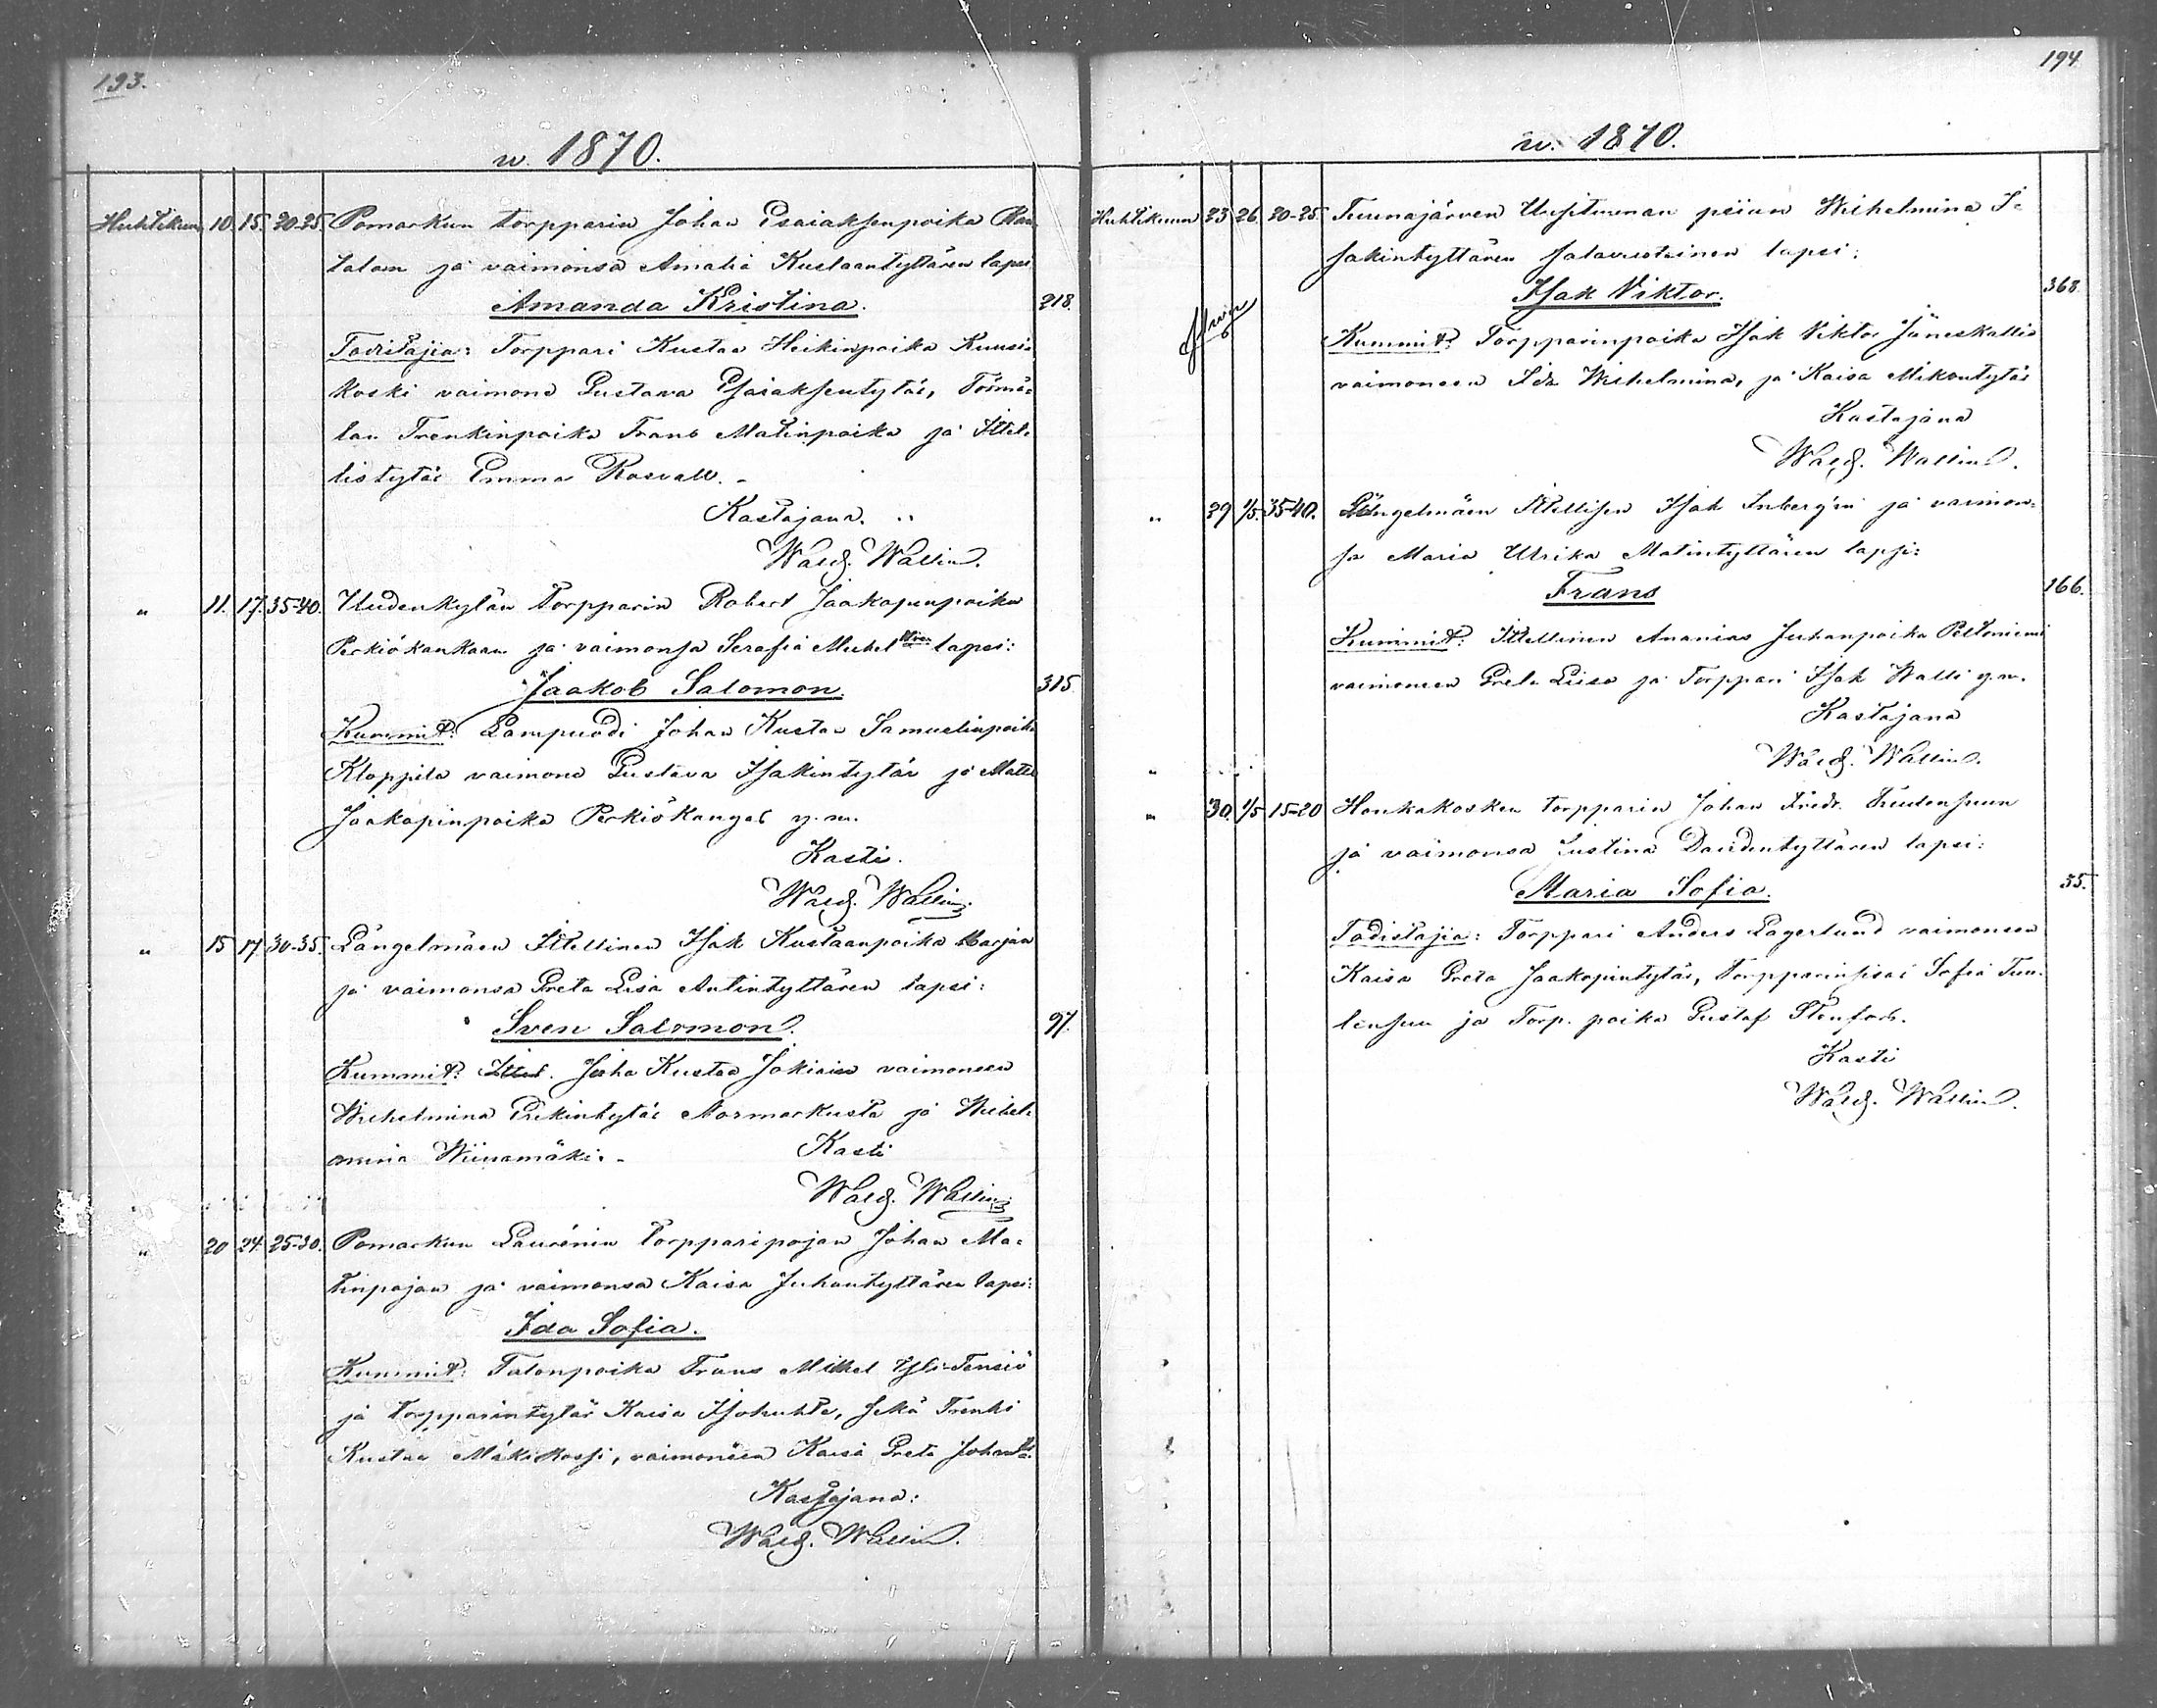 193.
w. 1870.
Huhtikun 10. 15. 20-25. Pomarkun torpparin Johan Esaiaksenpoika Ran-
talam ja vaimonsa Amalia Kustaantyttären lapsi
Amanda Kristina. 218.
Todistajia: Torppari Kustaa Heikinpoika Kuusi-
koski vaimone Gustava Esaiaksentytär, Törmä-
län Trenkinpoika Frans Matinpoika ja Ittel-
listytär Emma Rosvall.
Kastajana.
Wald. Wallin.
" 11. 17. 35-40. Uudenkylän torpparin Robert Jaakopinpoika
Perkiökankaan ja vaimonsa Serafia Michel lapsi:
Jaakob Salomon. 315
Kummit: Lampuodi Johan Kustaa Samuelinpoika
Kloppila vaimone Gustava Isakintytär ja Matts
Jaakopinpoika Perkiökangas y. m.
Kasti.
Wald. Wallin.
" 15 17. 30-35. Längelmäen Ittellinen Isak Kustaanpoika Marjan
ja vaimonsa Greta Lisa Antintyttären lapsi:
Sven Salomon. 97.
Kummit: Ittel. Juha Kustaa vaimoneen
Wilhelmina Erikintytär Normarkusta ja Wilhel-
mina Wiinamäki.- Kasti
Wald. Wallin
" 20 24. 25-30. Pomarkun Laurénin torpparipojan Johan Ma-
tinpojan ja vaimonsa Kaisa Juhantyttären lapsi:
Ida Sofia.
Kummit: Talonpoika Frans Mikkel Yli-Tensiö
ja torpparintytär Kaisa Isohuhta, sekä Trenki
Kustaa Mäkikossi, vaimoneen Kaisa Greta Johant.
Kastajana:
Wald. Wallin.
194
w. 1870.
Huhtikuun 23 26. 20-25. Tuunajärven Uusitunnan piian Wilhelmina I-
sakintyttären salavuoteinen lapsi:
Isak Viktor. 368.
Kummit: Torpparinpoika Isak Viktor Jäneskallio
vaimoneen Ida Wilhelmina, ja Kaisa Mikontytär
Kastajana
Wald. Wallin.
" 29 1/5. 35-40. Längelmäen Ittellisen Isak Inberg'in ja vaimon-
sa Maria Ulrika Matintyttären lapsi:
Frans 166.
Kummit: Ittellinen Ananias Juhanpoika Peltoniemi
vaimoneen Greta Liisa ja Torppari Isak Walli y. m.
Kastajana
Wald. Wallin.
"
" 30. 1/5 15-20 Honkakosken torpparin Johan Fredr. Tuulensuun
ja vaimonsa Justina Davidintyttären lapsi:
Maria Sofia. 35.
Todistajia: Torppari Anders Lagerlund vaimoneen
Kaisa Greta Jaakopintytär, torpparinsisar Sofia Tuu-
lensuu ja Torp. poika Gustaf Stenfors.
Kasti
Wald. Wallin.